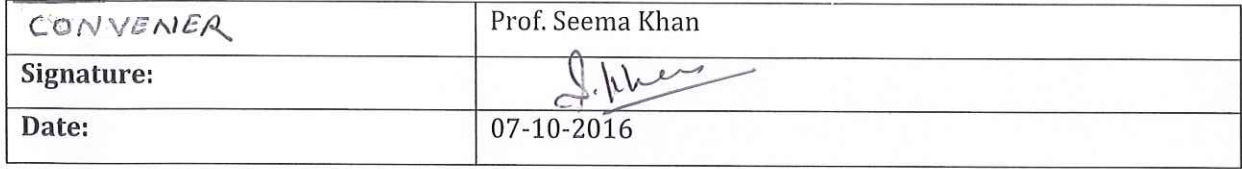 CONVENER Prof. Seema Khan
Signature: S. Khan
Date: 07-10-2016